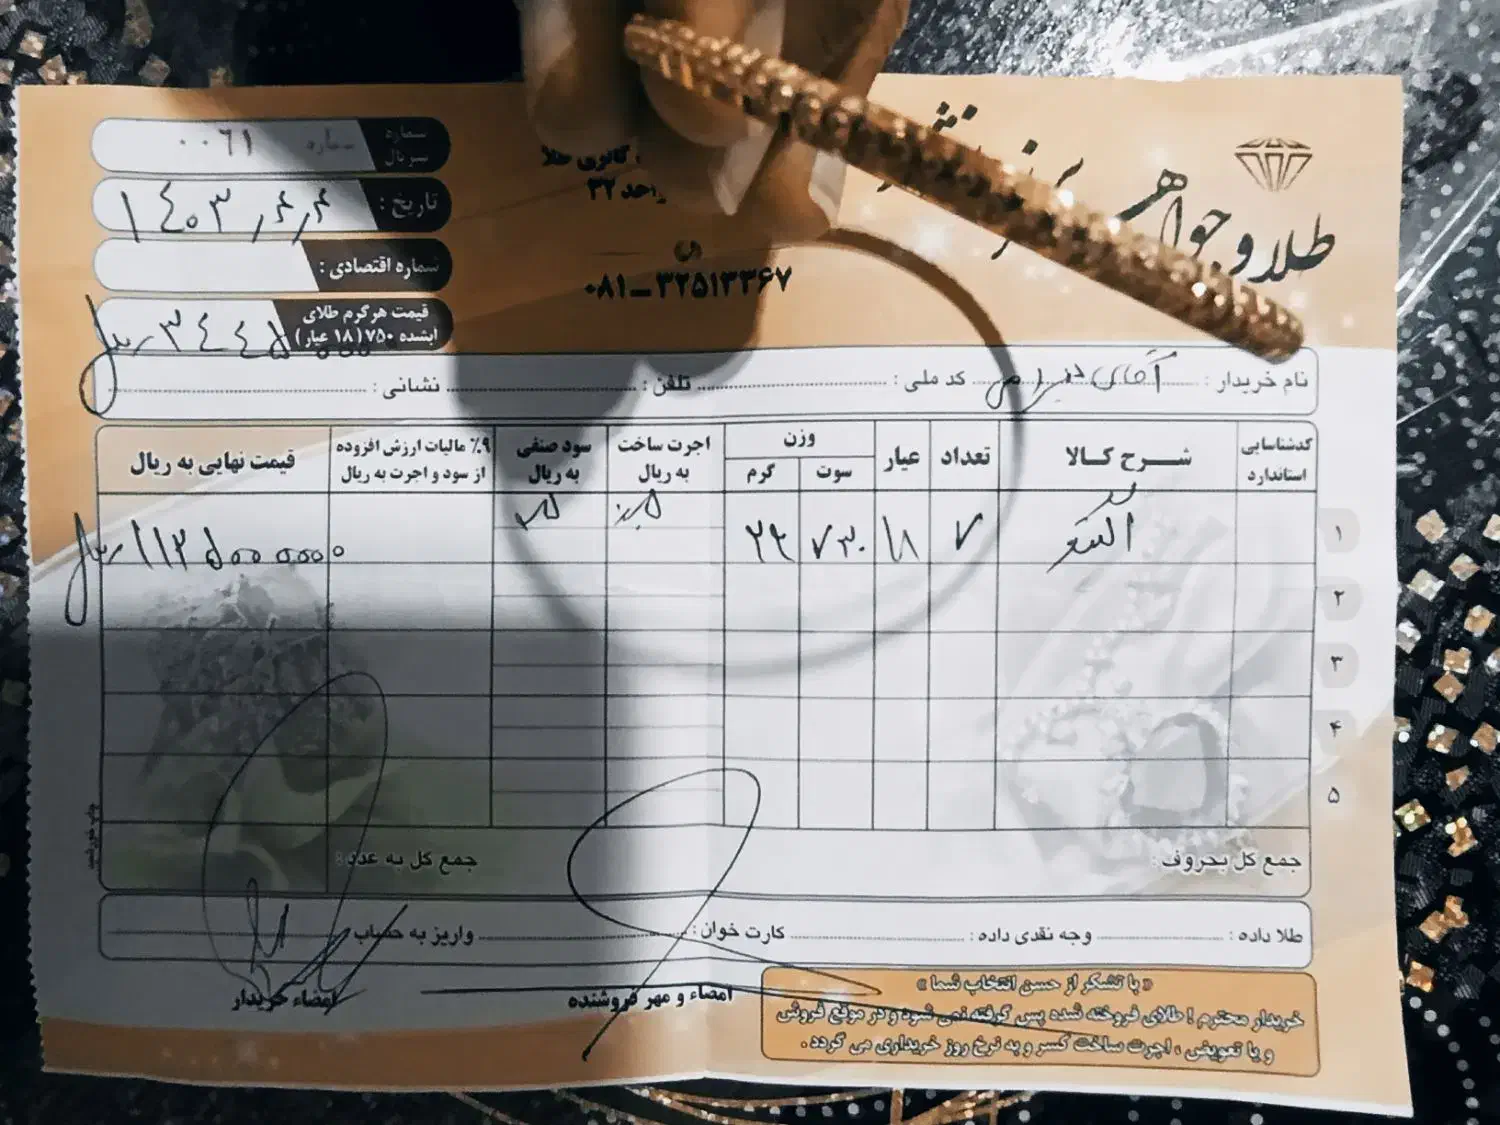 طلا و جواهر
گالری طلا
واحد ۳۲
۰۸۱-۳۲۵۱۳۳۶۷
شماره سریال
شماره ۰۰۶۱
تاریخ : ۱۴۰۳/۶/۶
شماره اقتصادی :
قیمت هر گرم طلای
آبشده ۷۵۰ (۱۸ عیار) ۳۴۴۵۰۰۰۰ ریال
نام خریدار : آقای کد ملی : تلفن : نشانی :
کدشناسایی استاندارد شرح کالا تعداد عیار وزن سوت گرم اجرت ساخت به ریال سود صنفی به ریال ۹٪ مالیات ارزش افزوده از سود و اجرت به ریال قیمت نهایی به ریال
۱ النگو ۷ ۱۸ ۷۳۰ ریال
۲
۳
۴
۵
جمع کل بحروف : جمع کل به عدد :
طلا داده : وجه نقدی داده : کارت خوان : واریز به حساب :
امضاء و مهر فروشنده امضاء خریدار
« با تشکر از حسن انتخاب شما »
خریدار محترم ! طلای فروخته شده پس گرفته نمی شود و در موقع فروش
و یا تعویض ، اجرت ساخت کسر و به نرخ روز خریداری می گردد .